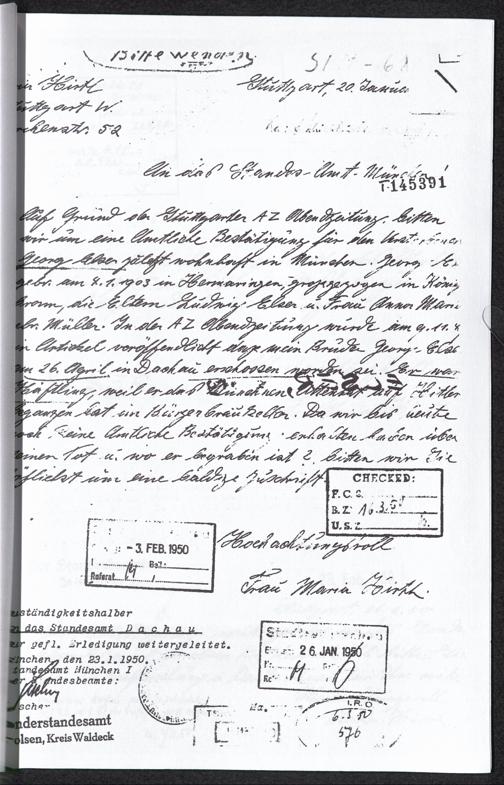 Bitte wenden
Hirth
Stuttgart, 20. Janua
uttgart W.
chenstr. 52
An das Standes-Amt-Münch
T145391
Auf Grund der Stuttgarter AZ Abendzeitung, bitten
wir um eine Amtliche Bestätigung für den
Georg Elser zuletzt wohnhaft in München. Georg E
gebr. am 4.1.1903 in Hermaringen, grossgezogen in König
bronn, die Eltern Ludwig Elser u. Frau Anna Mari
eb. Müller. In der AZ Abendzeitung wurde am 9.11.
in Artikel veröffendlicht das mein Bruder Georg Else
am 26. April in Dachau erschossen worden sei. Er war
Häftling, weil er das Münchner Attentat auf Hitler
gangen hat im Bürgerbräukeller. Da wir bis heute
noch keine Amtliche Bestätigung erhalten haben über
einen Tot u. wo er begraben ist? bitten wir Sie
öflichst um eine baldige Zuschrift.
CHECKED:
F.C.S.
B.Z. 16.3.50
U.S.Z.
- 3. FEB. 1950
Referat
Hochachtungsvoll
Frau Maria Hirth.
uständigkeitshalber
n das Standesamt Dachau
ur gefl. Erledigung weitergeleitet.
ünchen, den 23.1.1950.
tandesamt München I
er Standesbeamte:
26. JAN. 1950
nderstandesamt
olsen, Kreis Waldeck
I.R.O
6.3.50
576